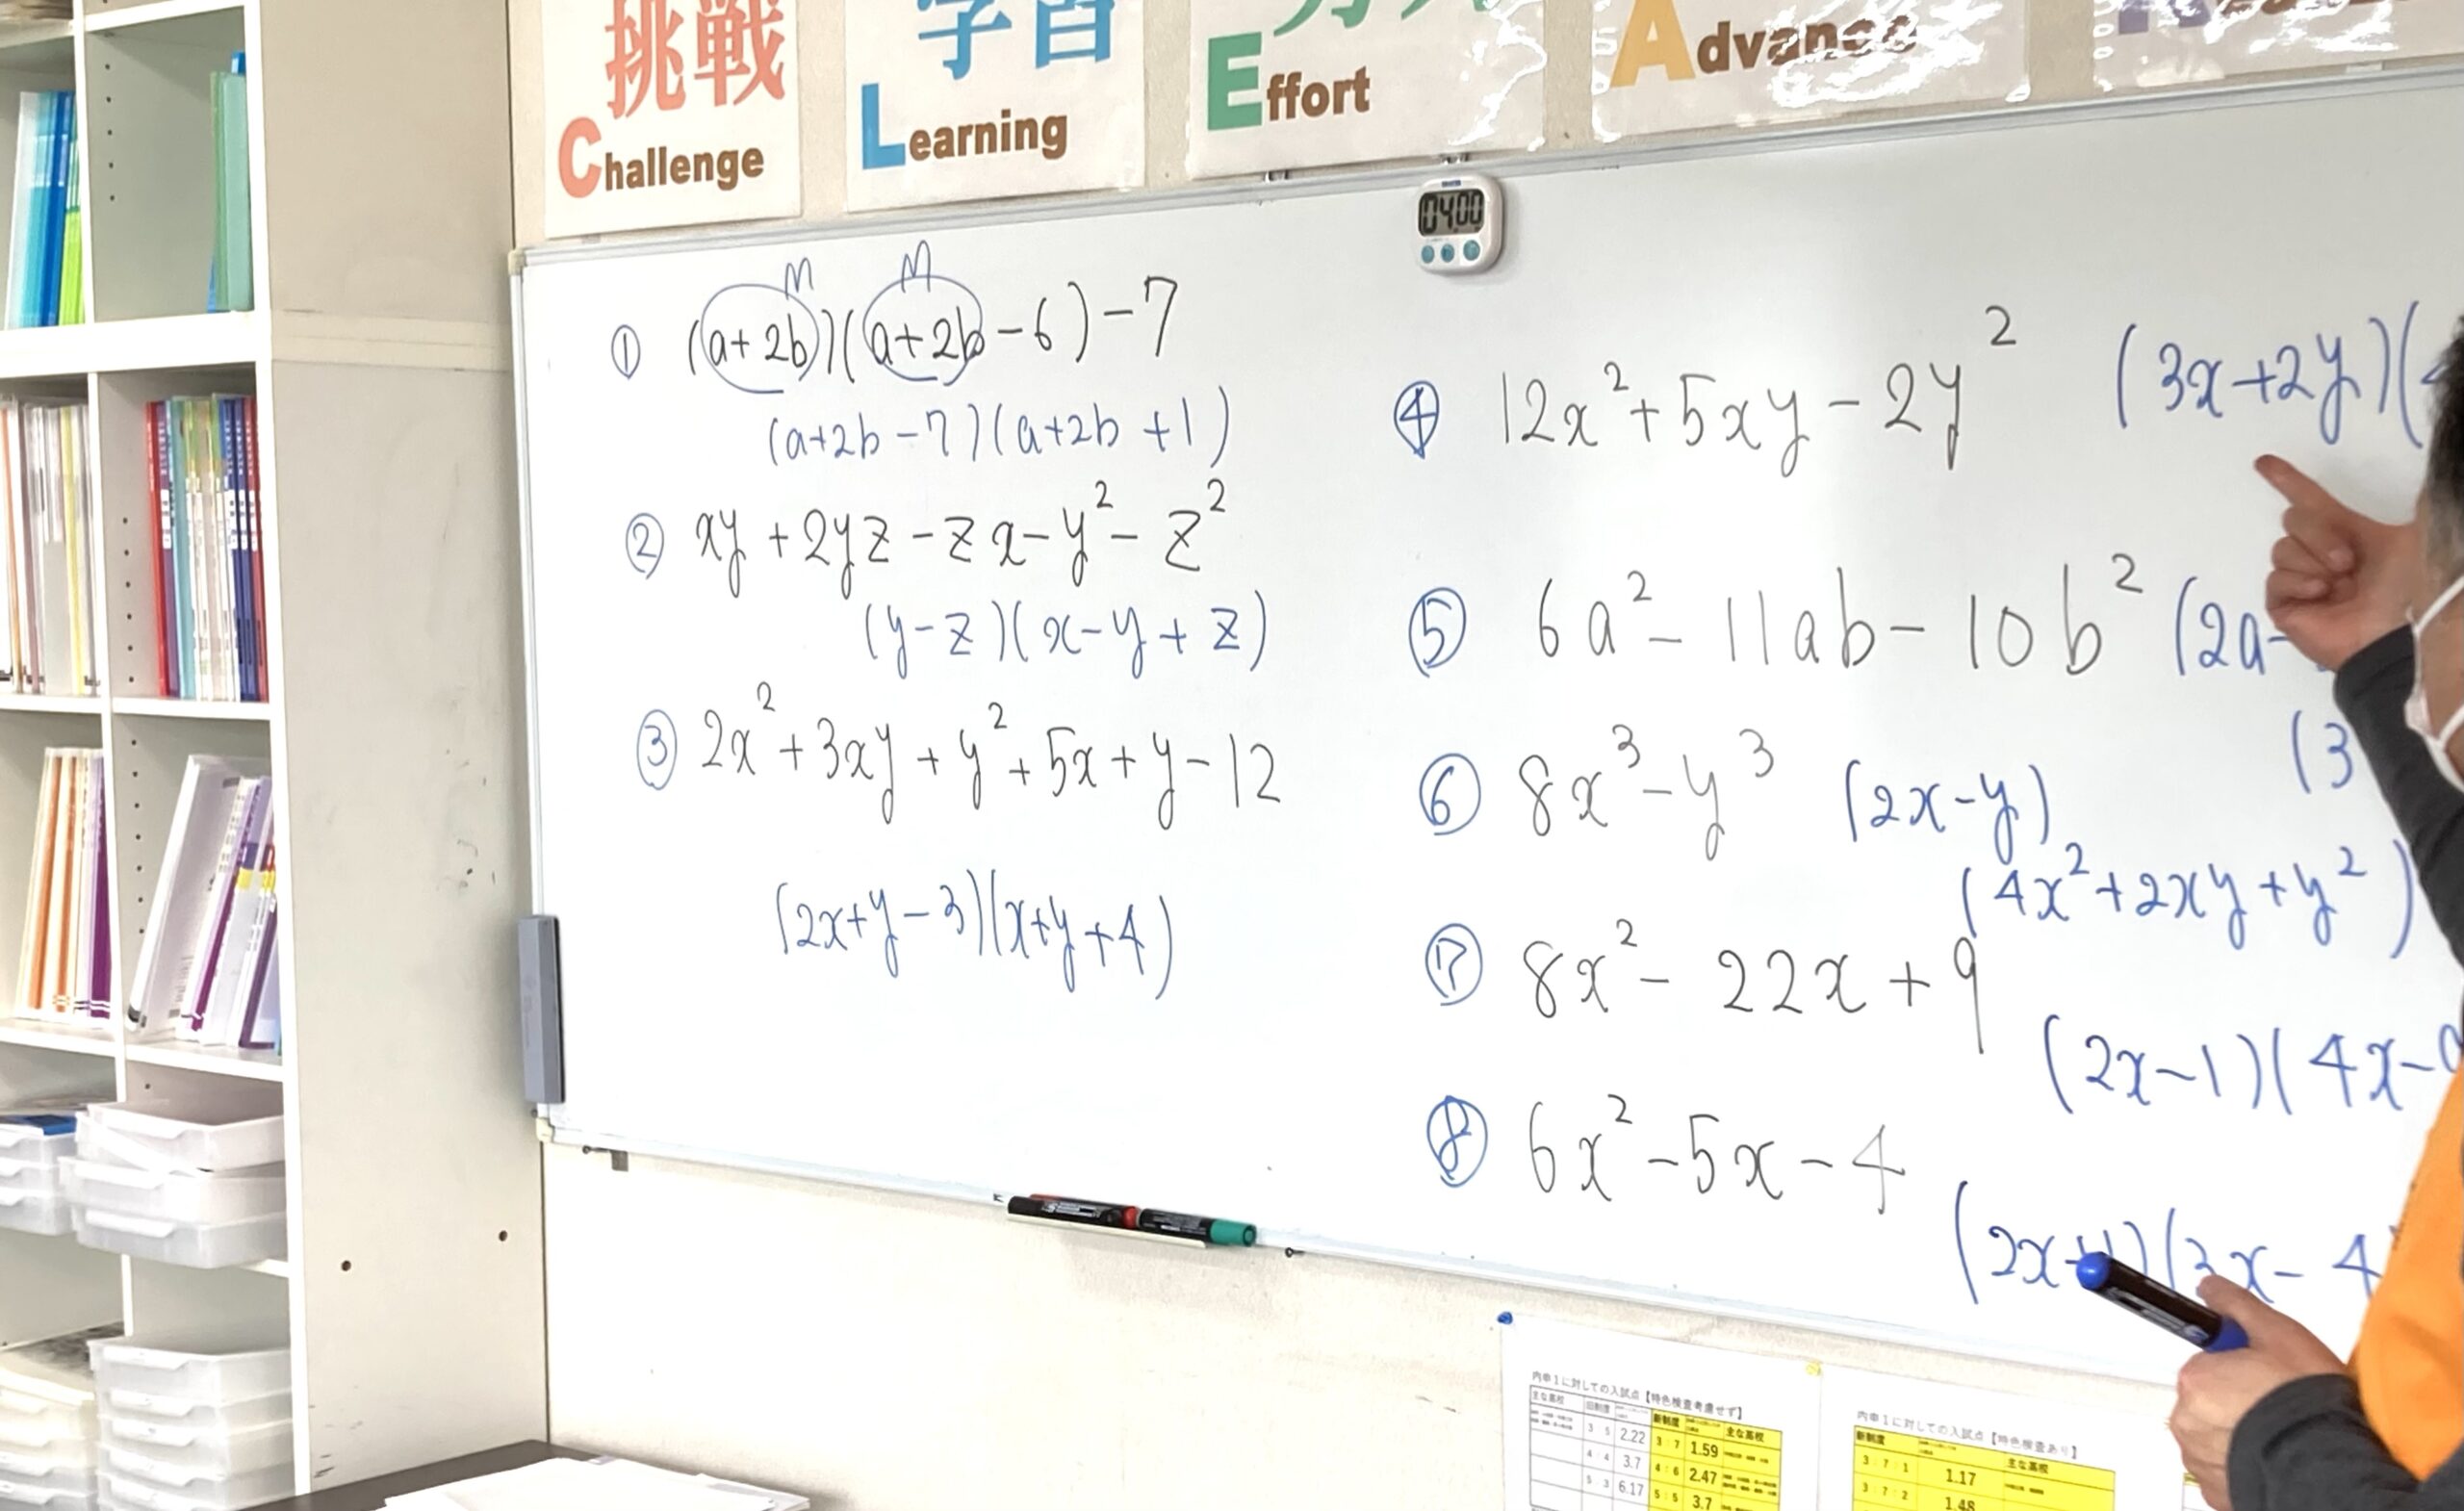 挑戦
Challenge
学習
Learning
Effort
Advance
04:00
M M
① (a+2b)(a+2b-6)-7
(a+2b-7)(a+2b+1)
② xy+2yz-zx-y²-z²
(y-z)(x-y+z)
③ 2x²+3xy+y²+5x+y-12
(2x+y-3)(x+y+4)
④ 12x²+5xy-2y² (3x+2y)(
⑤ 6a²-11ab-10b² (2a-
(3
⑥ 8x³-y³ (2x-y)
(4x²+2xy+y²)
⑦ 8x²-22x+9
(2x-1)(4x-
⑧ 6x²-5x-4
(2x+1)(3x-4
内申1に対しての入試点【特色検査考慮せず】
主な高校 旧制度 新制度 主な高校
3 : 5 2.22 3 : 7 1.59
4 : 4 3.7 4 : 6 2.47
5 : 3 6.17 5 : 5 3.7
内申1に対しての入試点【特色検査あり】
新制度 主な高校
3 : 7 : 1 1.17
3 : 7 : 2 1.48